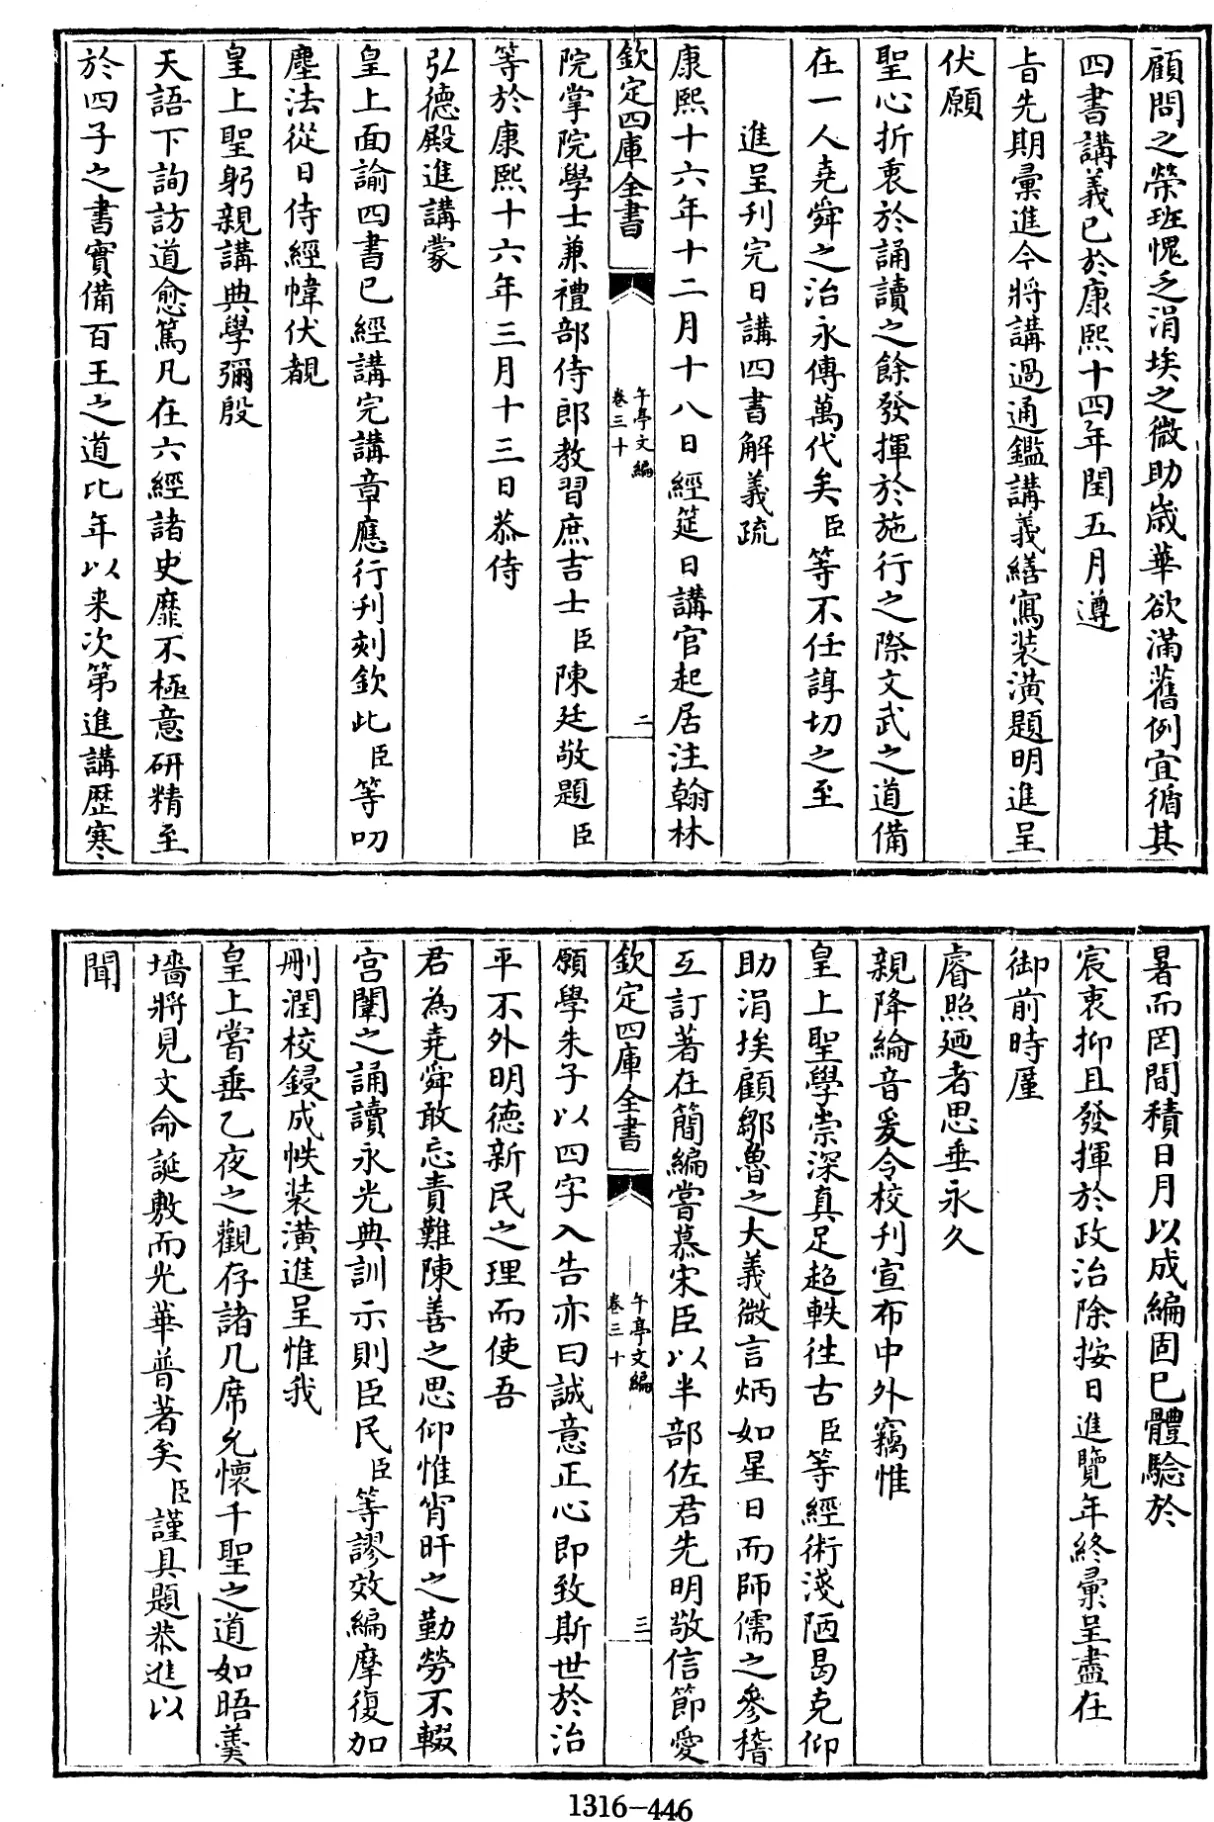 顧問之榮班愧乏涓埃之微助歲華欲滿舊例宜循其
四書講義已於康熙十四年閏五月遵
旨先期彙進今將講過通鑑講義繕寫裝潢題明進呈
伏願
聖心折衷於誦讀之餘發揮於施行之際文武之道備
在一人堯舜之治永傳萬代矣臣等不任諄切之至
進呈刊完日講四書解義疏
康熙十六年十二月十八日經筵日講官起居注翰林
欽定四庫全書
午亭文編
卷三十
二
院掌院學士兼禮部侍郎教習庶吉士臣陳廷敬題臣
等於康熙十六年三月十三日恭侍
弘德殿進講蒙
皇上面諭四書已經講完講章應行刊刻欽此臣等叨
塵法從日侍經幃伏覩
皇上聖躬親講典學彌殷
天語下詢訪道愈篤凡在六經諸史靡不極意研精至
於四子之書實備百王之道比年以来次第進講歷寒
暑而罔間積日月以成編固已體驗於
宸衷抑且發揮於政治除按日進覽年終彙呈盡在
御前時厪
睿照廼者思垂永久
親降綸音爰令校刊宣布中外竊惟
皇上聖學崇深真足超軼往古臣等經術淺陋曷克仰
助涓埃顧鄒魯之大義微言炳如星日而師儒之參稽
互訂著在簡編嘗慕宋臣以半部佐君先明敬信節愛
欽定四庫全書
午亭文編
卷三十
三
願學朱子以四字入告亦曰誠意正心即致斯世於治
平不外明德新民之理而使吾
君為堯舜敢忘責難陳善之思仰惟宵旰之勤勞不輟
宮闈之誦讀永光典訓示則臣民臣等謬效編摩復加
刪潤校鋟成帙裝潢進呈惟我
皇上嘗垂乙夜之觀存諸几席允懷千聖之道如晤羹
墻將見文命誕敷而光華普著矣臣謹具題恭進以
聞
1316-446